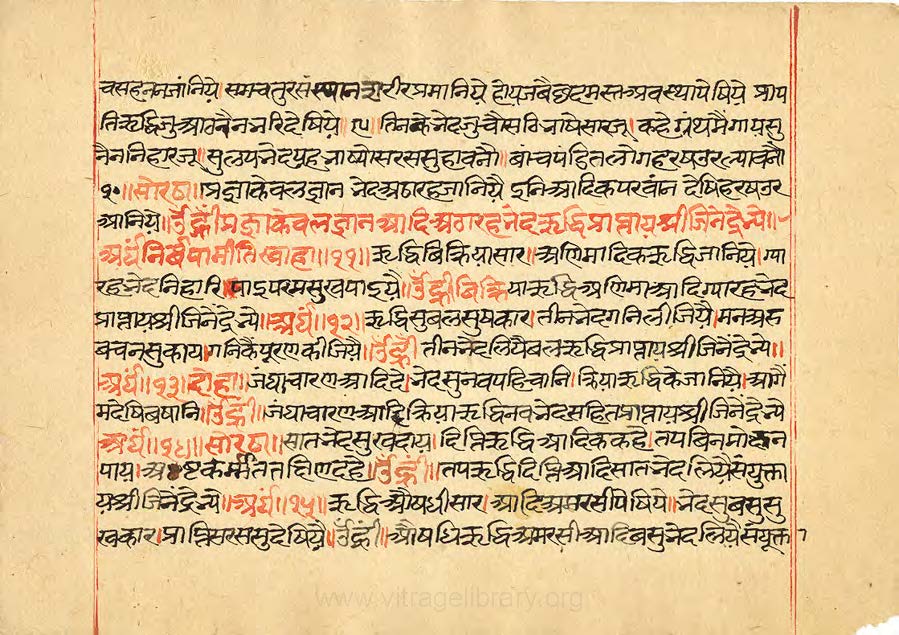 चसहननजांनिये। समचतुरसंस्थानशरीरप्रमानिये होयजबैछदमस्तअवस्थायेषिये प्राप
तिऋद्धिजुआवनैनन्नरिदेषिये॥९॥तिनकेभेदजुचौसविभाषेसारजू। कहेग्रंथमैगायसु
नैननिहारजू।सुलपभेदयुहभाष्योसरससुहावनौ।बांचपंडितलोगहरषउरल्यावनौ
१०॥सोरठा॥प्रज्ञाकेवलज्ञान भेदअठारहजानिये इनिआदिकपरवांन देषिहरषउर
आनिये॥उँह्रींप्रज्ञाकेवलज्ञानआदिअठारहभेदऋद्धिप्राप्तायश्रीजिनेंद्रेभ्ये॥
अर्घंनिर्वपामीतिस्वाहा॥११॥ऋद्धिविक्रियासार।अणिमादिकऋद्धिजानिये।ग्या
रहभेदनिहारि।पाऽपरमसुखपाऽयै॥उँह्रींविक्रियाऋद्धिअणिमाआदिग्यारहभेद
प्राप्तायश्रीजिनेंद्रेभ्ये॥अर्घं॥१२॥ऋद्धिसुबलसुषकार।तीनभेदगनिलीजियै।मनअरु
बचनसुकाय।गनिकैपूरणकीजियै।उँह्रीं तीनभेदलियैबलऋद्धिप्राप्तायश्रीजिनेंद्रेभ्ये॥
अर्घं॥१३॥दोहा॥जंघाचारणआदिदे।भेदसुनवपहिचानि।क्रियाऋद्धिकेजानियै।आगै
मदेषिबषानि॥उँह्रीं॥जंघाचारणआदिक्रियाऋद्धिनवभेदसहितप्राप्तायश्रीजिनेंद्रेभ्ये
अर्घं॥१४॥सोरठा॥सातभेदसुखदाय।दिप्तिऋद्धिआदिककहै।तपबिनमोछन
पाय।अष्टकर्मततछिणदहै।उँह्रीं॥तपऋद्धिदिप्तिआदिसातभेदलियैसंयुक्ता
यश्रीजिनेंद्रेभ्ये॥अर्घं॥१५॥ऋद्धिऔषधीसार।आदिअमरसीपिषिये॥भेदसुबसुसु
खकार।प्राप्तिसरससुदेषियै।उँह्रीं॥औषधिऋद्धिअमरसीआदिबसुभेदलियैसंयूक्त
www.vitragelibrary.org